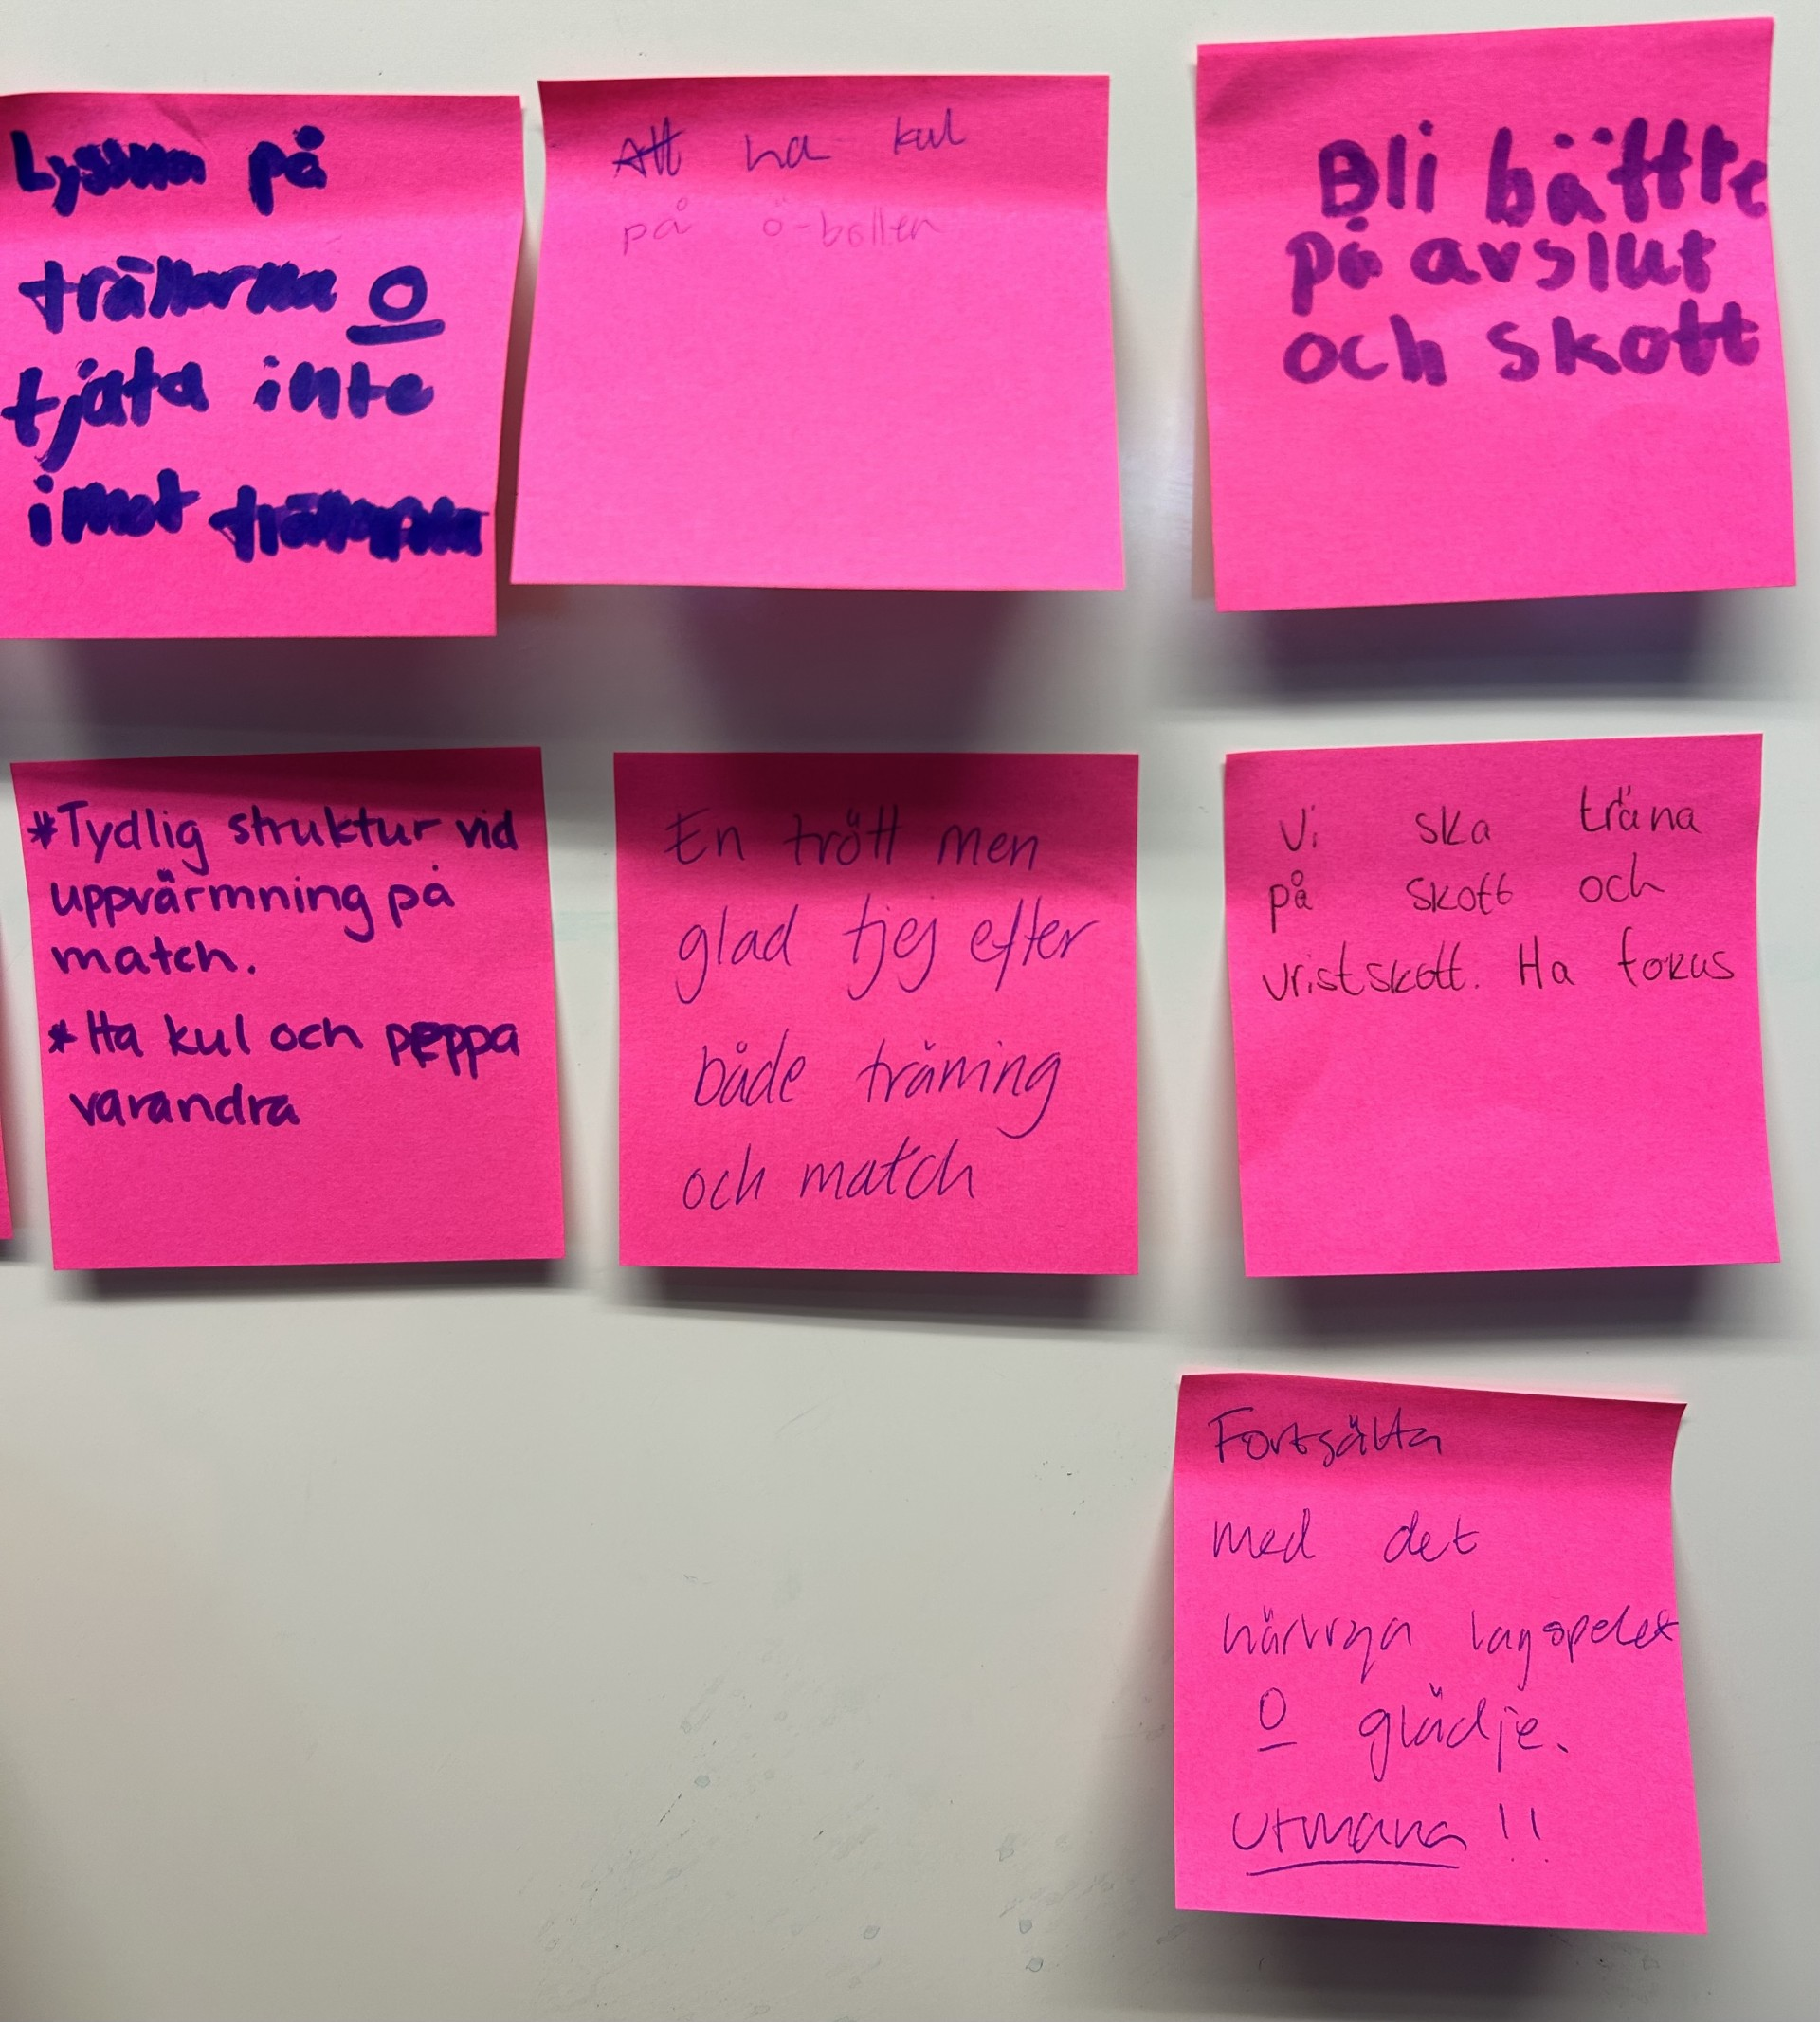 Lyssna på
tränarna o
tjata inte
imot tränarna
Att ha kul
på ö-bollen
Bli bättre
på avslut
och skott
*Tydlig struktur vid
uppvärmning på
match.
*Ha kul och peppa
varandra
En trött men
glad tjej efter
både träning
och match
Vi ska träna
på skott och
vristskott. Ha fokus
Fortsätta
med det
härliga lagspelet
o glädje.
Utmana !!